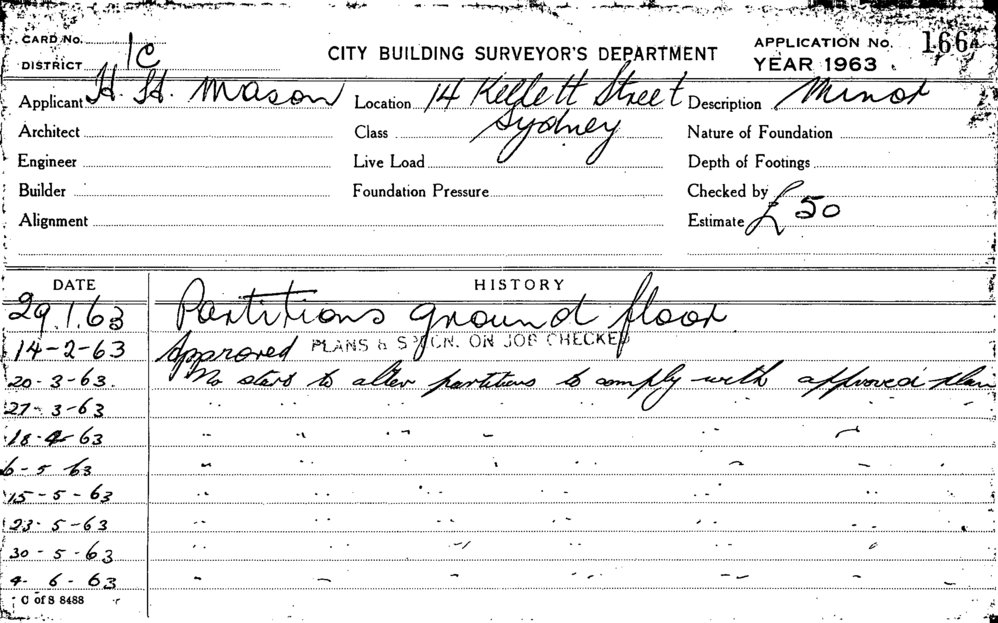 CARD No.
DISTRICT 1C
CITY BUILDING SURVEYOR'S DEPARTMENT
APPLICATION No. 166
YEAR 1963
Applicant H. H. Mason Location 14 Kellett Street Sydney Description Minor
Architect Class Nature of Foundation
Engineer Live Load Depth of Footings
Builder Foundation Pressure Checked by
Alignment Estimate £50
DATE HISTORY
29.1.63 Partitions ground floor
14-2-63 Approved PLANS & SPCN. ON JOB CHECKED
20-3-63. No start to alter partitions to comply with approved plan
27-3-63 " " " " " " "
18-4-63 " " " " "
6-5-63 " " " " " " "
15-5-63 " " " " " "
23-5-63 " " " " " " "
30-5-63 " " " " " "
4-6-63 " " " " " "
C of S 8488